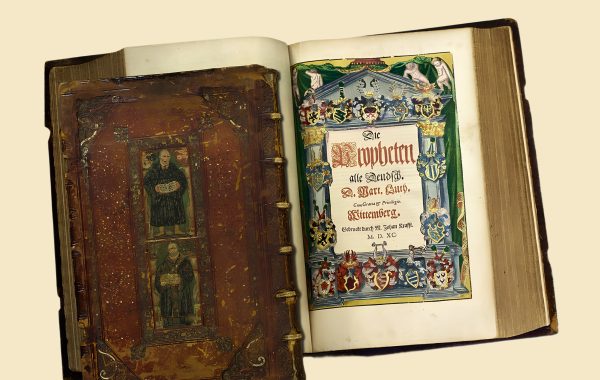 Die
Propheten
alle Deudsch.
D. Mart. Luth.
Cum Gratia & Privilegio.
Wittemberg.
Gedruckt durch M. Johan Krafft.
M. D. XC.